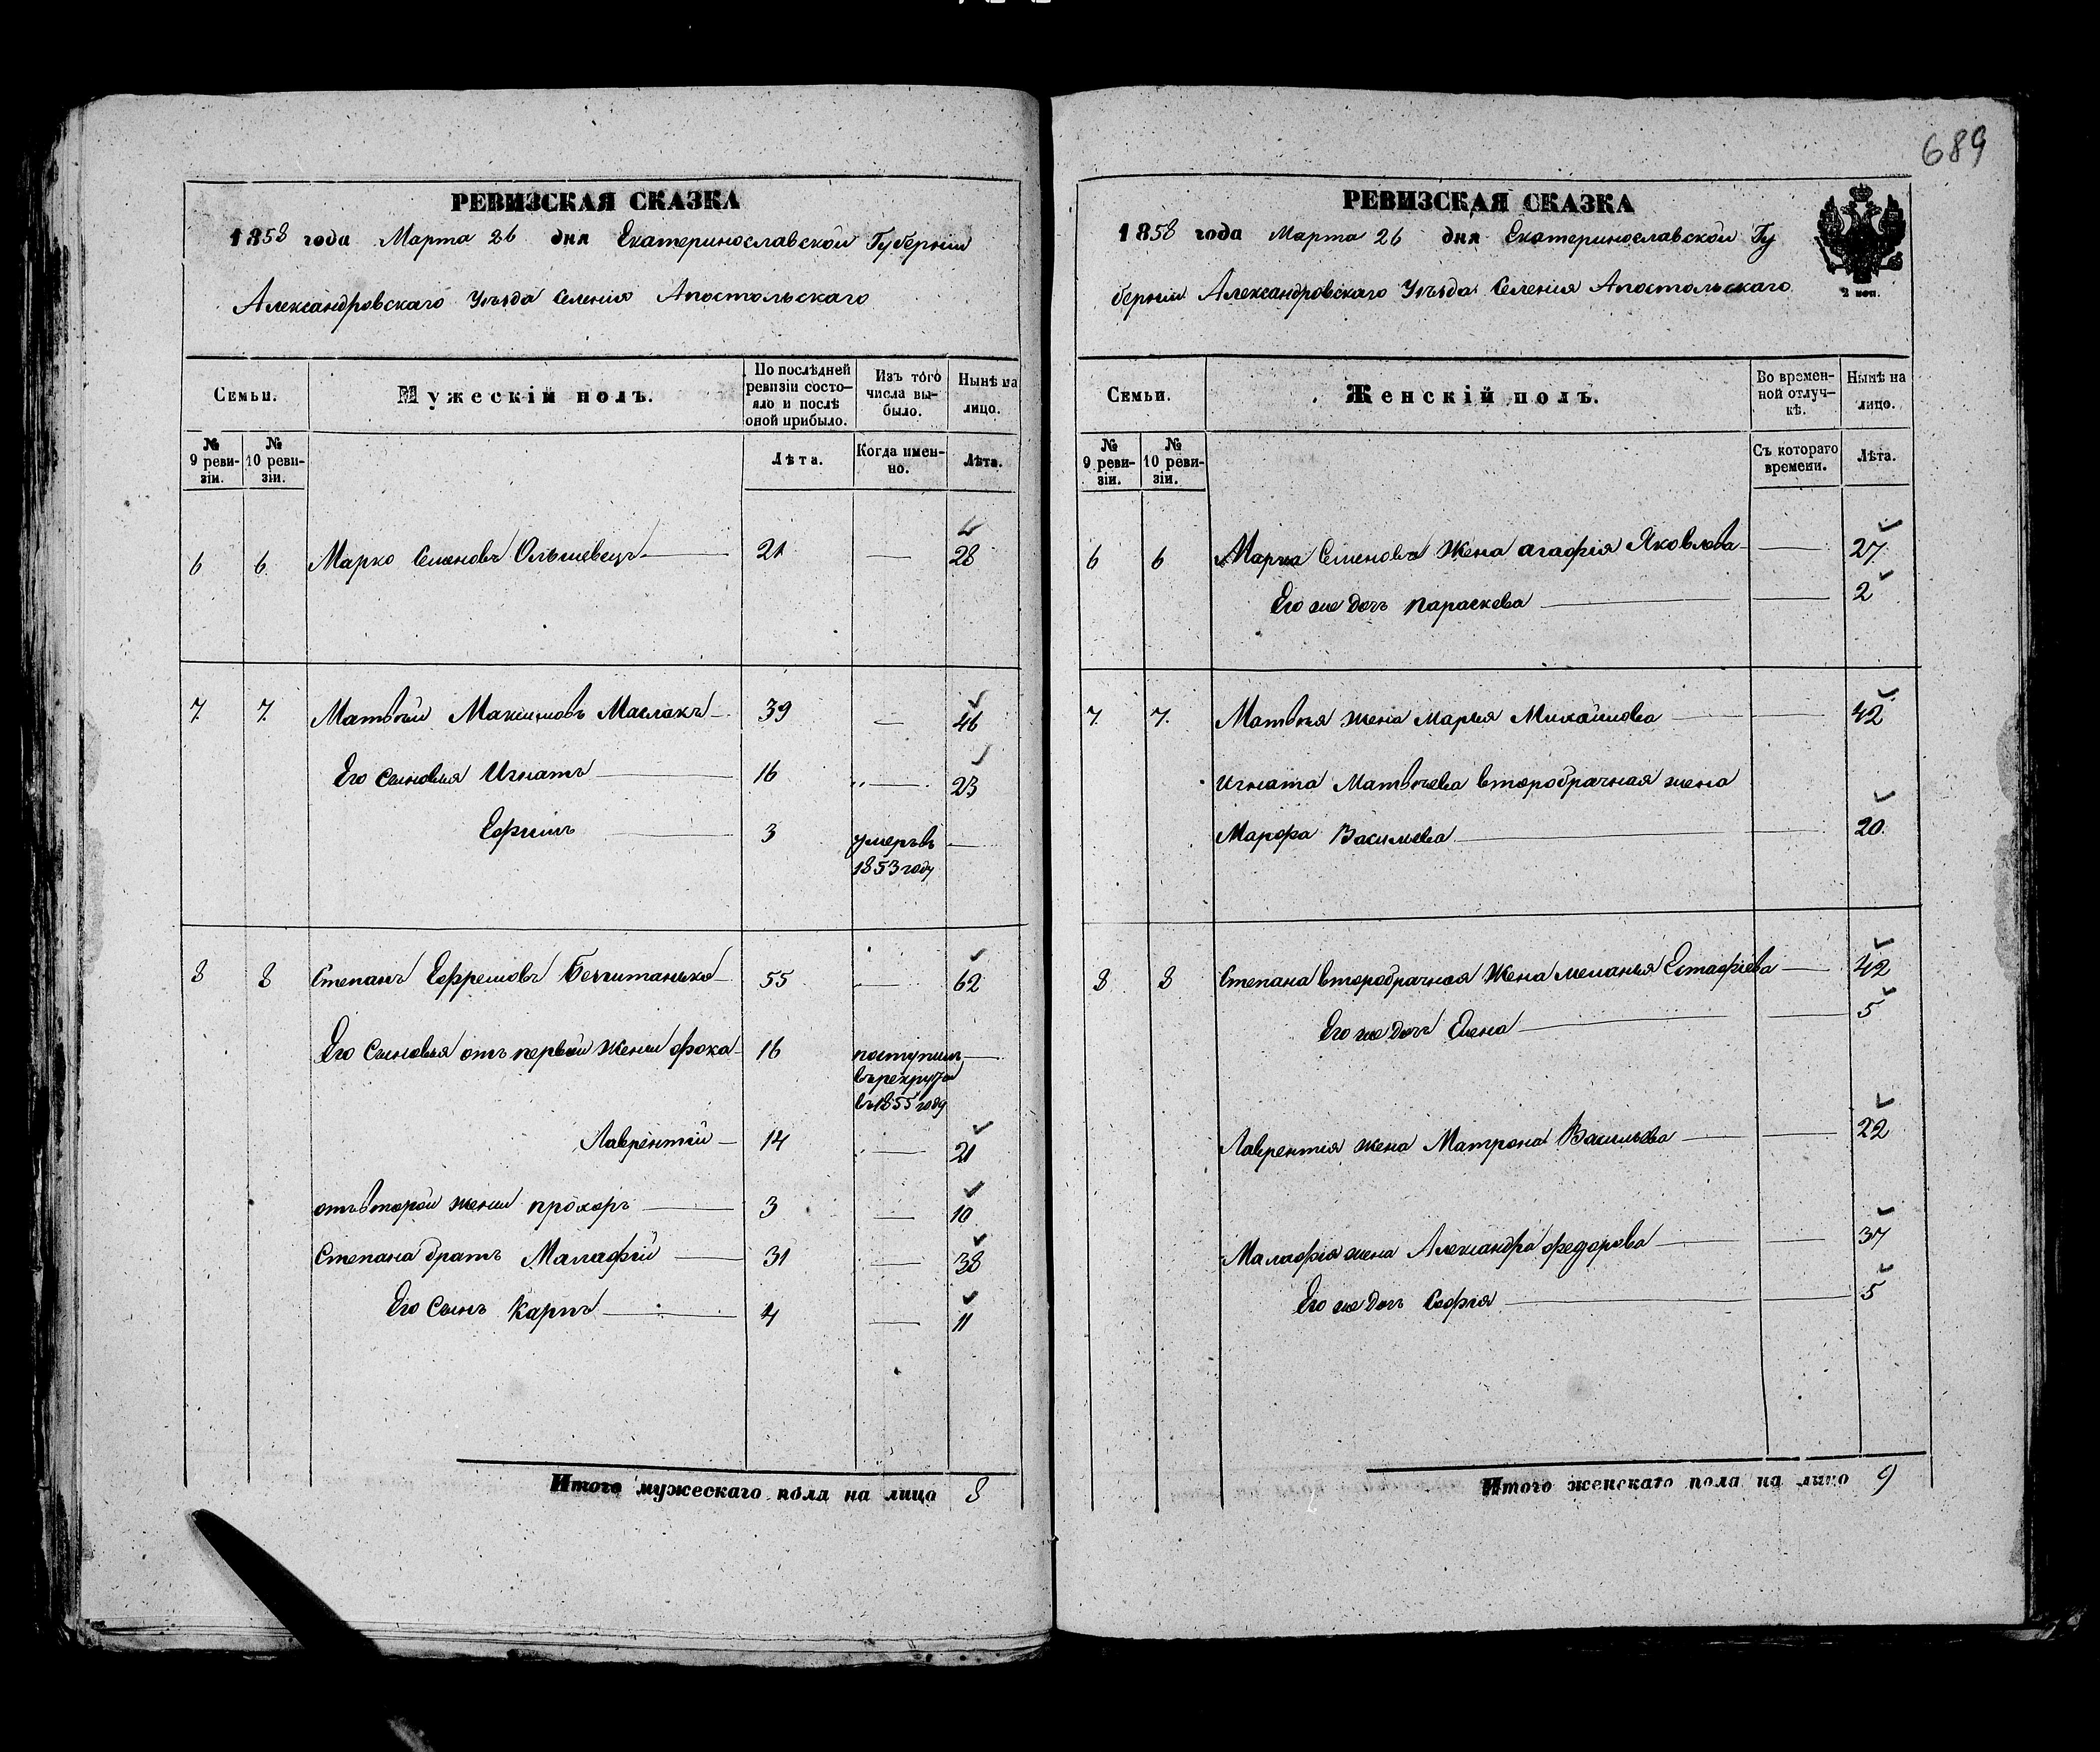 689
РЕВИЗСКАЯ СКАЗКА
1858 года Марта 26 дня Екатеринославской Губернии
Александровскаго Уѣзда Селенія Апостольскаго
Семьи.
Мужескій полъ.
По послѣдней ревизіи состояло и послѣ оной прибыло.
Изъ того числа выбыло.
Нынѣ на лицо.
№ 9 ревизіи.
№ 10 ревизіи.
Лѣта.
Когда именно.
Лѣта.
6 6 Марко Семеновъ 21 — 28
7. 7. Матвѣй Максимовъ Маслакъ 39 — 46
Его Сыновья Игнатъ 16 — 23
Ефимъ 3 умеръ въ —
1853 году
8 8 Степанъ Ефремовъ 55 — 62
Его Сыновья отъ первой жены фока 16 поступилъ —
въ рекруты
въ 1855 году
Лаврентій 14 — 21
отъ второй жены прохоръ 3 — 10
Степана братъ Малафій 31 — 38
Его Сынъ Карпъ 4 — 11
Итого мужескаго пола на лицо 8
РЕВИЗСКАЯ СКАЗКА
1858 года Марта 26 дня Екатеринославской Гу
берніи Александровскаго Уѣзда Селенія Апостольскаго
2 коп.
Семьи.
Женскій полъ.
Во временной отлучкѣ.
Нынѣ на лицо.
№ 9 ревизіи.
№ 10 ревизіи.
Съ котораго времени.
Лѣта.
6 6 Марка Семенова жена агафія Яковлева — 27
Его же дочь параскева — 2
7. 7. Матвѣя жена марья Михайлова — 42
Игната Матвѣева второбрачная жена
Марфа Васильева — 20
8 8 Степана второбрачная жена меланья Естафіева — 42
Его же дочь Елена — 5
Лаврентія жена Матрона Васильева — 22
Малафія жена Александра федорова — 37
Его же дочь Софія — 5
Итого женскаго пола на лицо 9